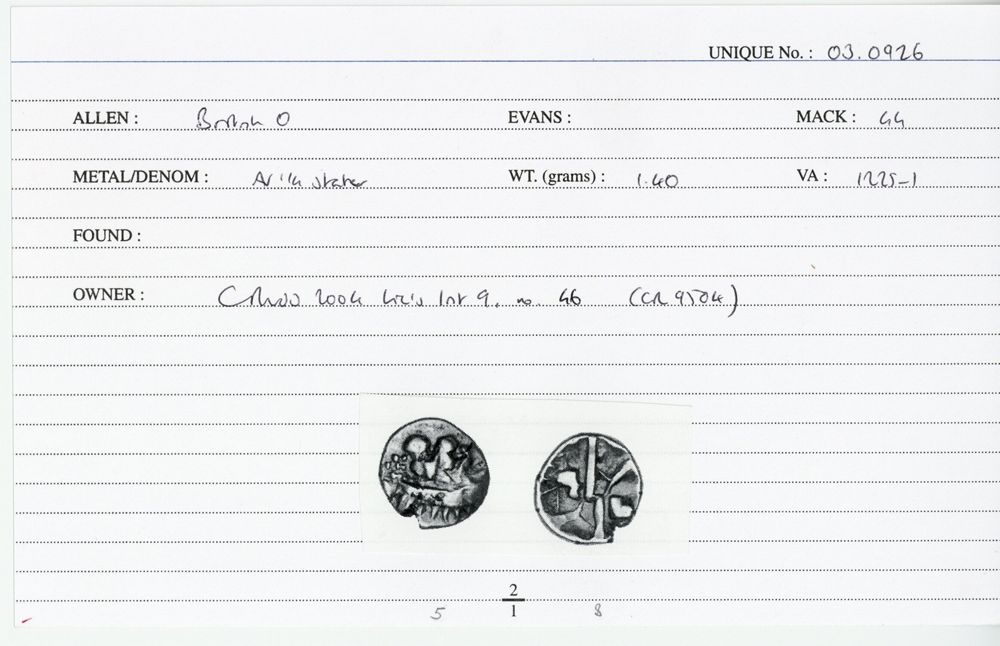 UNIQUE No. : 03.0926
ALLEN : British O EVANS : MACK : 44
METAL/DENOM : AV 1/4 stater WT. (grams) : 1.40 VA : 1225-1
FOUND :
OWNER : 2004 9. no. 46 (CR 9504)
2
5 1 8